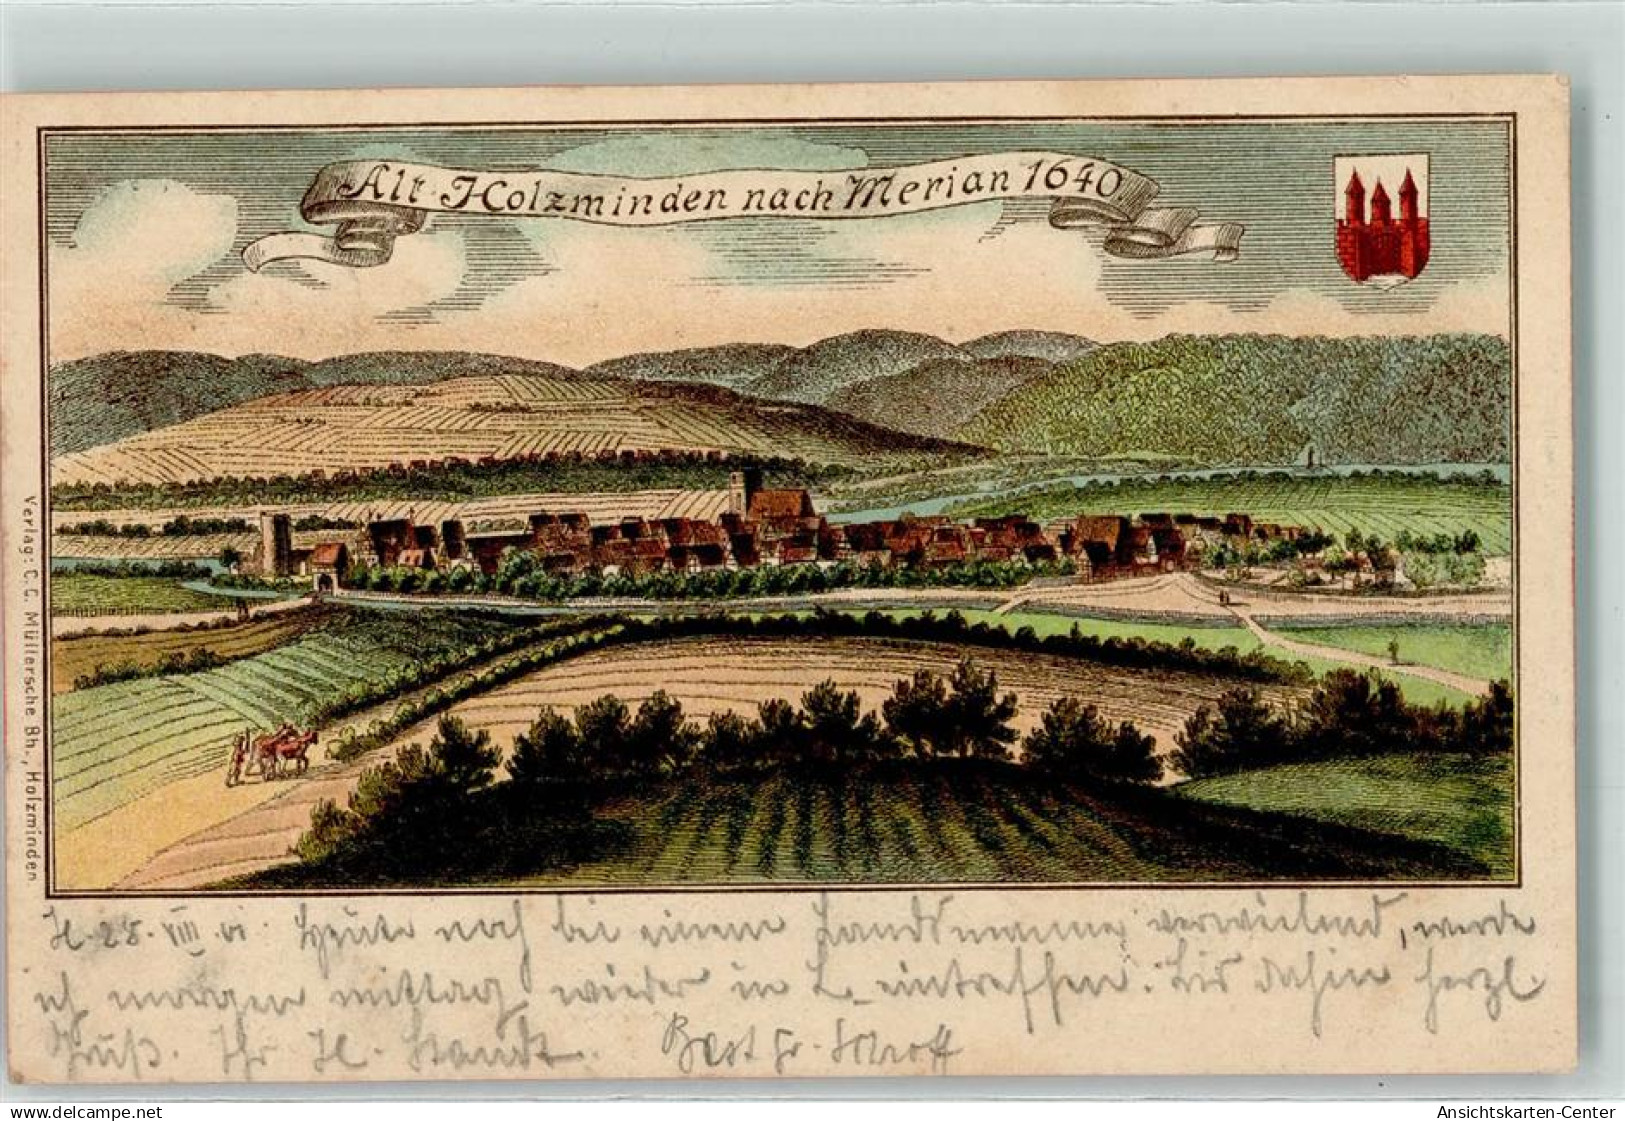 Alt-Holzminden nach Merian 1640
Verlag: C. C. Müllersche Bh., Holzminden
H. 28. VIII. 01. Heute noch bei einem Landsmanne verweilend, werde
ich morgen mittag wieder in L. eintreffen. Bis dahin herzl.
Gruß. Ihr H.
oldthing
Ansichtskarten-Center